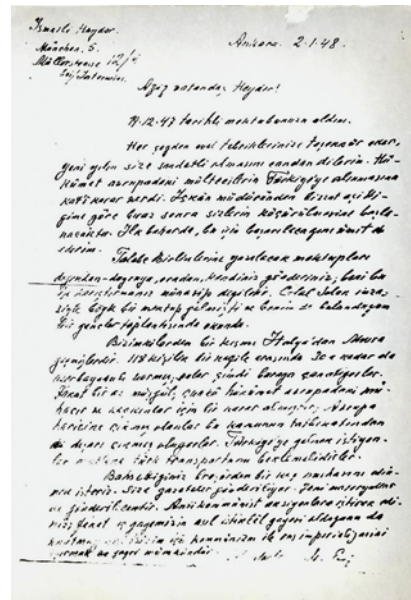 Ismaili Heyder.
München. 5.
Müllerstrasse 12/
Ankara. 2.1.48.
Aziz vatandaş Heyder!
11.12.47 tarihli mektubunuzu aldım.
Her şeyden evvel tebriklerinize teşekkür eder,
yeni yılın size saadetli olmasını candan dilerim. Hü-
kümet avrupadeni mültecilerin Türkiye'ye alınmasına
kat'i karar verdi. İskân müdüründen bizzat
göre biraz sonra sizlerin köçürülmesine başla-
nacaktır. İlk baharda, bu işin başarılacağını ümit e-
derim.
Talebe Birliklerine yazılacak mektupları
doğrudan-doğruya, oradan, kendiniz gönderiniz, beni bu
işe münasip değildir. Celal
bir mektup gelmişti ve benim de bulunduğum
bir gençler toplantısında okundu.
Bizimkilerden bir kısmı Italya'dan Mısıra
geçmişlerdir. 118 kişilik bir kafile arasında 30 a kadar da
azerbaycanlı varmış,
Fakat bir az müşgül, çünkü hükümet avrupadeni mü-
hacir ve kaçkınlar için bir karar almıştır, Avrupa
haricine çıkmış olanlar bu kanunun tatbikatından
dışarı çıkmış oluyorlar. Türkiye'ye gelmek istiyen-
ler türk transportunu beklemelidirler.
Bahsettiğiniz broşürden bir kaç nushasını
isteriz. Size gazeteler gönderiliyor. Yeni
gönderilecektir. Antikommünist
fakat gayemizin asıl istiklâl gayesi olduğunu da
için kommünizm ile rus imperializmini
mümkündür.